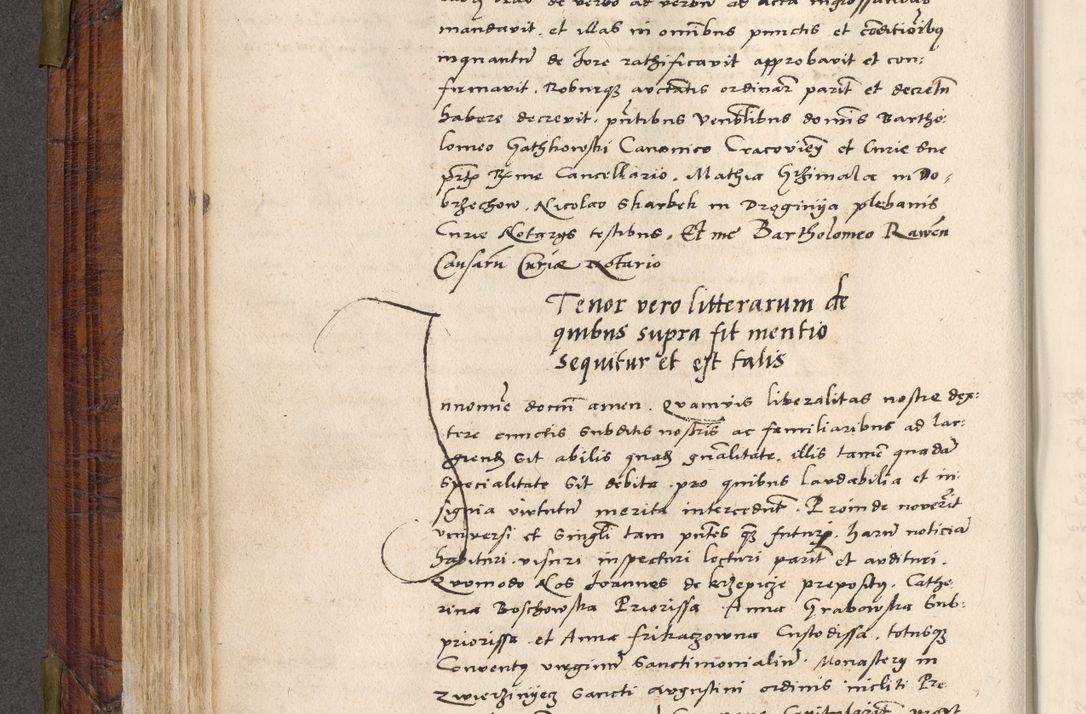 mandavit, et illas in omnibus punctis et conditioibq
inquantu de Jure rathificavit approbavit et con-
firmavit. Roburqz auctatis ordinar parit et decretu
habere decrevit. pntibus Venblibus domis Bartho-
lomeo Gathkowski Canonico Cracovien et Curie sue
Cancellario, Mathia Grzimala in Do-
brzechow, Nicolao Skarbek in Droginija plebanis
Curie Notarys testibus. Et me Bartholomeo Rawen
Causaru Curiæ Notario
Tenor vero litterarum de
quibus supra fit mentio
sequitur et est talis
Innomie domi amen. Quamvis liberalitas nostre dex-
tere cunctis subditis nostris ac familiaribus ad lar-
giend sit abilis quadam gnalitate, illis tame quada
specialitate sit debita, pro quibus laudabilia et in-
signia virtutu merita intercedunt. Proinde noverit
universi et singli tam pntes qz futuri, haru noticia
habituri, visuri inspecturi lecturi parit et audituri.
Quomodo Nos Joannes de krzepicze prepositq, Cathe-
rina Boschowska Priorissa Anna Grabowska Sub-
priorissa et Anna frikaczowna Custodissa, totusqz
Conventq virginu Sanctimonialiu Monastery in
Zwierzinijecz Sancti Augustini ordinis incliti Pre-